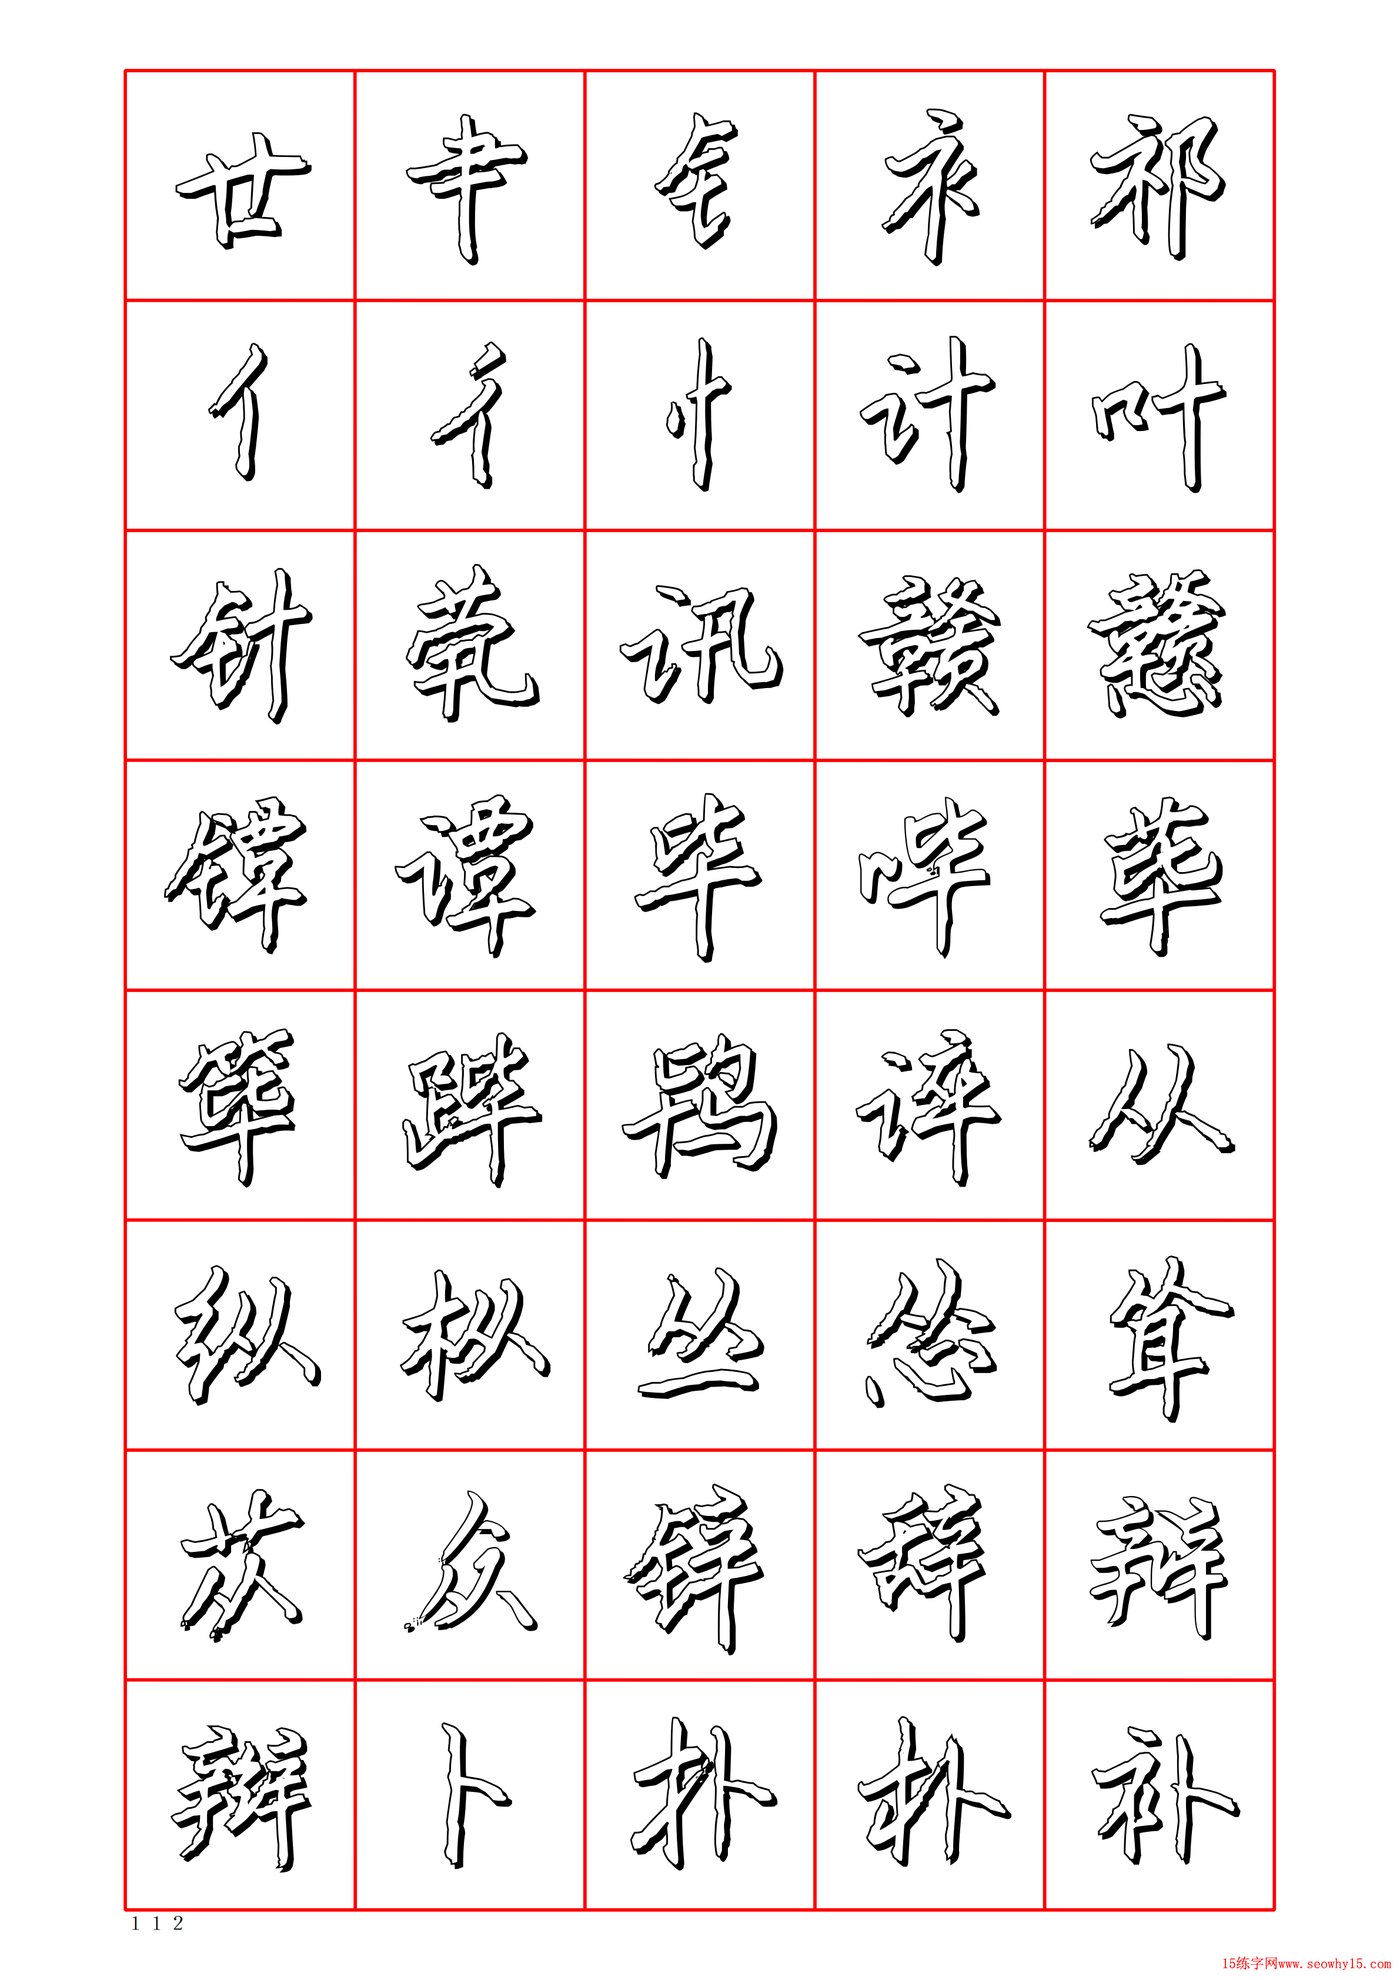 廿 肀 钅 衤 祁
亻 彳 忄 计 叶
针 茕 讯 赣 戆
镡 谭 毕 哔 荜
筚 跸 鹎 谇 从
纵 枞 丛 怂 耸
苁 众 锌 辞 辩
辫 卜 扑 朴 补
112
15练字网www.seowhy15.com